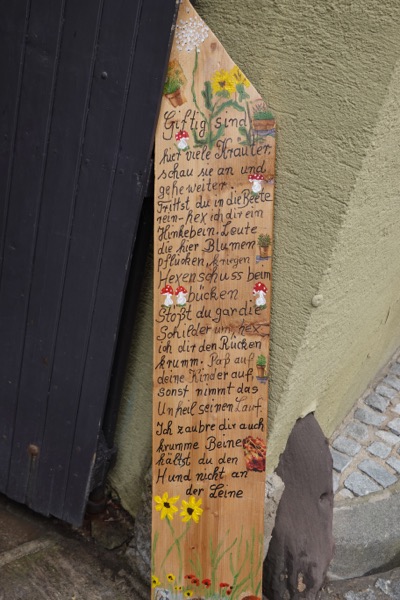 Giftig sind
hier viele Kräuter,
schau sie an und
gehe weiter.
Trittst du in die Beete
rein-hex ich dir ein
Hinkebein. Leute
die hier Blumen
pflücken, kriegen
Hexenschuss beim
bücken
Stoßt du gar die
Schilder um, hex
ich dir den Rücken
krumm. Paß auf
deine Kinder auf
sonst nimmt das
Unheil seinen Lauf.
Ich zaubre dir auch
krumme Beine
hältst du den
Hund nicht an
der Leine